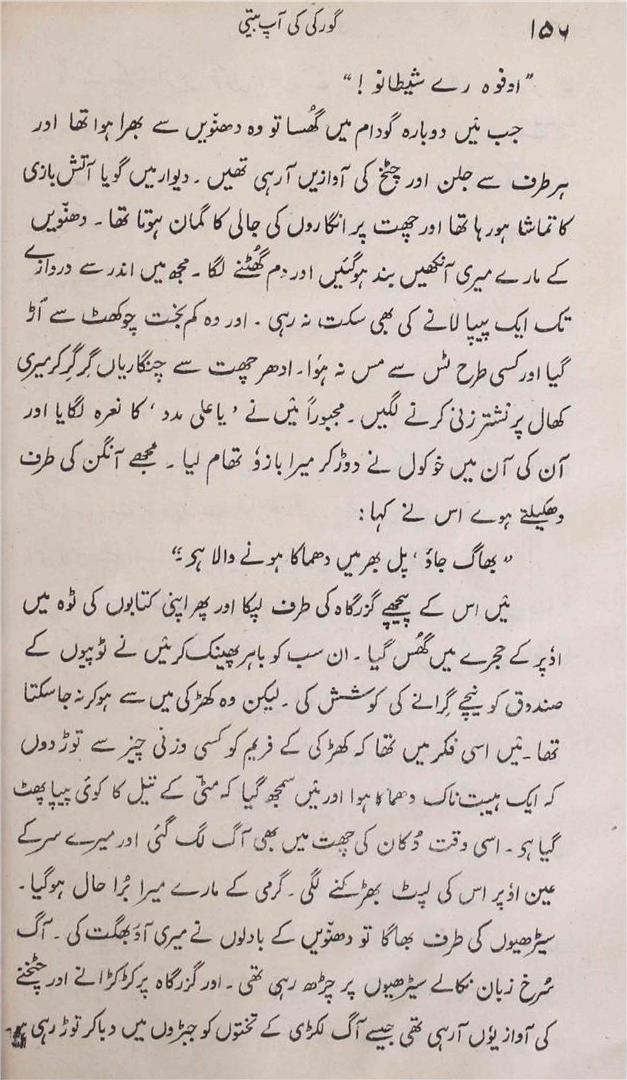 ۱۵۶ گورکی کی آپ بیتی
”اوفوہ رے شیطانو!“
جب مَیں دوبارہ گودام میں گھُسا تو وہ دھنّویں سے بھرا ہوا تھا اور
ہر طرف سے جلن اور چٹخ کی آوازیں آرہی تھیں۔ دیوار میں گویا آتش بازی
کا تماشا ہو رہا تھا اور چھت پر انگاروں کی جالی کا گمان ہوتا تھا۔ دھنّویں
کے مارے میری آنکھیں بند ہوگئیں اور دم گھُٹنے لگا۔ مجھ میں اندر سے دروازے
تک ایک پیپا لانے کی بھی سکت نہ رہی۔ اور وہ کم بخت چوکھٹ سے اَڑ
گیا اور کسی طرح ٹس سے مس نہ ہوٗا۔ ادھر چھت سے چنگاریاں گِر گِر کر میری
کھال پر نشتر زنی کرنے لگیں۔ مجبوراً مَیں نے ’یا علی مدد‘ کا نعرہ لگایا اور
آن کی آن میں خوکول نے دوڑ کر میرا بازوٗ تھام لیا۔ مجھے آنگن کی طرف
دھکیلتے ہوے اس نے کہا:
”بھاگ جاوٗ، پل بھر میں دھماکا ہونے والا ہی۔“
مَیں اس کے پیچھے گزرگاہ کی طرف لپکا اور پھر اپنی کتابوں کی ٹوہ میں
اوٗپر کے حجرے میں گھُس گیا۔ ان سب کو باہر پھینک کر مَیں نے ٹوپیوں کے
صندوق کو نیچے گرانے کی کوشش کی۔ لیکن وہ کھڑکی میں سے ہو کر نہ جاسکتا
تھا۔ مَیں اسی فکر میں تھا کہ کھڑکی کے فریم کو کسی وزنی چیز سے توڑ دوں
کہ ایک ہیبت ناک دھماکا ہوا اور مَیں سمجھ گیا کہ مٹّی کے تیل کا کوئی پیپا پھٹ
گیا ہی۔ اسی وقت دُکان کی چھت میں بھی آگ لگ گئی اور میرے سر کے
عین اوٗپر اس کی لپٹ بھڑکنے لگی۔ گرمی کے مارے میرا بُرا حال ہوگیا۔
سیڑھیوں کی طرف بھاگا تو دھنّویں کے بادلوں نے میری آوبھگت کی۔ آگ
سُرخ زبان نکالے سیڑھیوں پر چڑھ رہی تھی۔ اور گزرگاہ پر کڑکڑانے اور چٹخنے
کی آواز یوٗں آرہی تھی جیسے آگ لکڑی کے تختوں کو جبڑوں میں دبا کر توڑ رہی